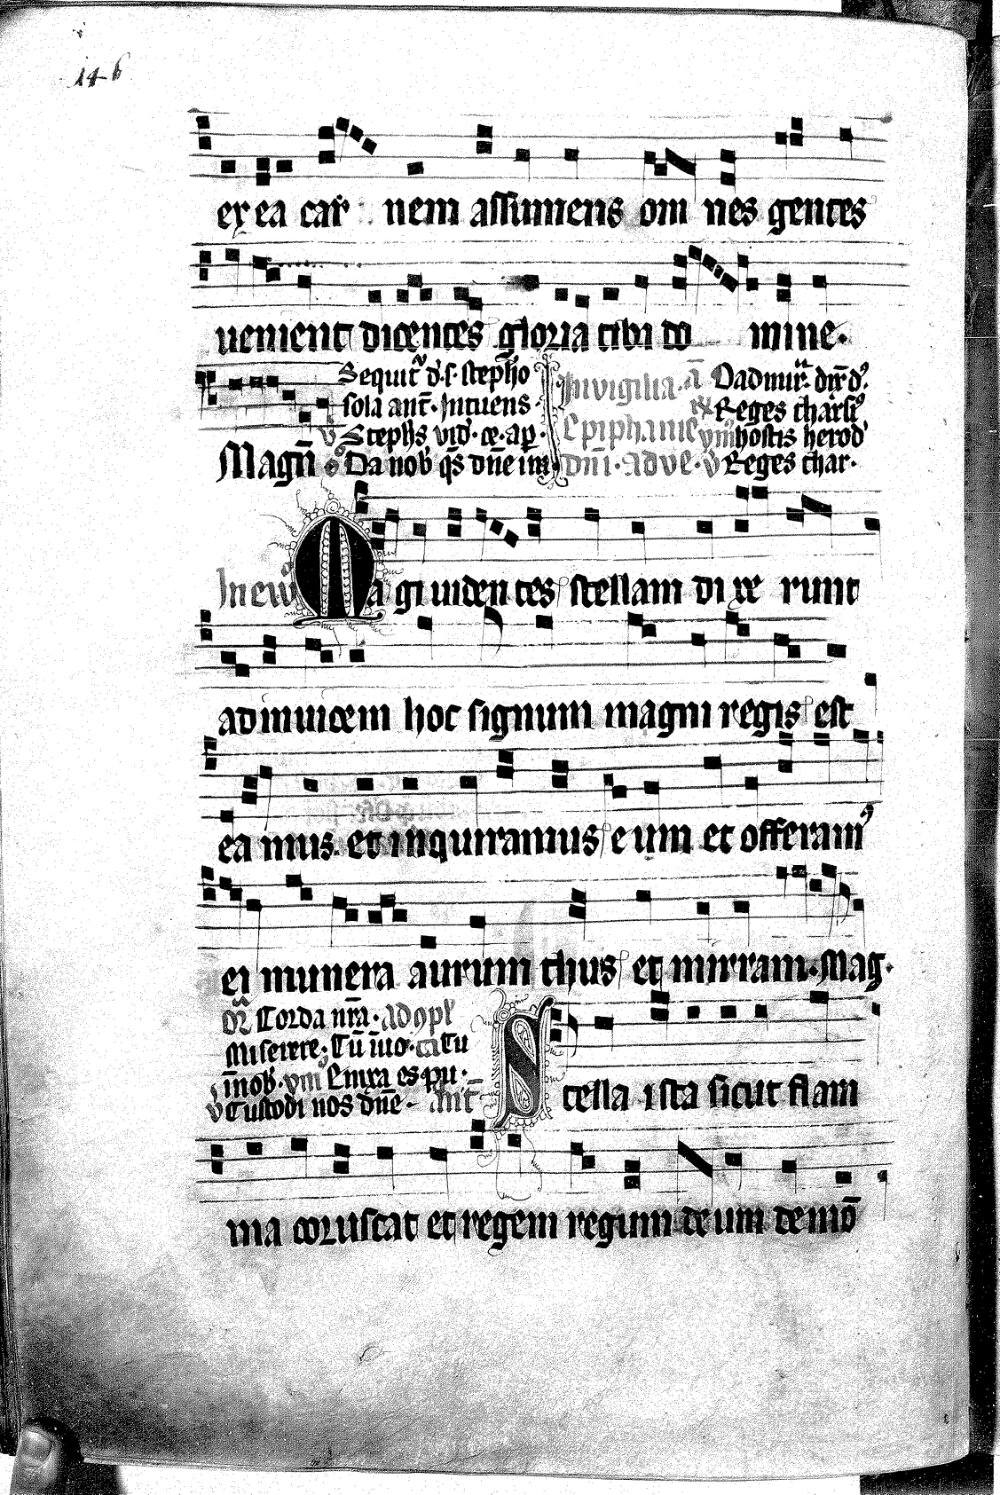 146
ex ea car nem assumens om nes gentes
uenient dicentes gloria tibi do mine.
Sequit̃ d̃. s. stepho
sola ant̃. Intuens
Steph̃s vid̃. ce. ap̃.
Magñ Da nob̃ q̃s dñe im
In vigilia. a
Epiphanie
dñi. adue. v̄
Dadiuir̃. dir̃ d̃.
Reges charsi
ym̃ hostis herod̃
Reges char.
In euu Magi uiden tes stellam di xe runt
ad inuicem hoc signum magni regis est
ea mus. et inquiramus e um et offeram᾽
ei munera aurum thus et mirram. Mag.
or̃ Corda nr̃a. ad 9pl̃
Miserere. Tū iuo. cã tu
i nob̃. ym̃ Enixa es pu.
v̄ Custodi nos dñe. Ant̃
Stella ista sicut flam
ma coruscat et regem regum de um de mō